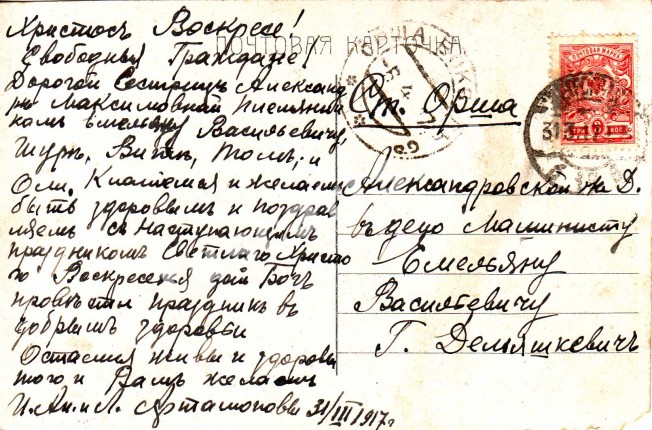 Христосъ Воскресе!
Свободные Граждане!
ПОЧТОВАЯ КАРТОЧКА
Дорогой Сестрицѣ Александ
рѣ Максимовнѣ Племянни
камъ Емельяну Васильевичу,
Шурѣ, Витѣ, Толѣ, и
Оли, Кланяемся и желаемъ
быть здоровымъ и поздрав
ляемъ съ наступающимъ
праздникомъ Светлаго Христо
го Воскресенья дай Богъ
провѣсти праздникъ въ
добрымъ здоровьи
Остаемся живы и здоровы
того и Вамъ желаемъ
И. Ан. и Л. Артамоновы 31/III 1917г
Ст. Орша
Александровской ж. Д.
въ депо Машинисту
Емельяну
Васильевичу
Г. Деляшкевичъ
ПОЧТОВАЯ МАРКА